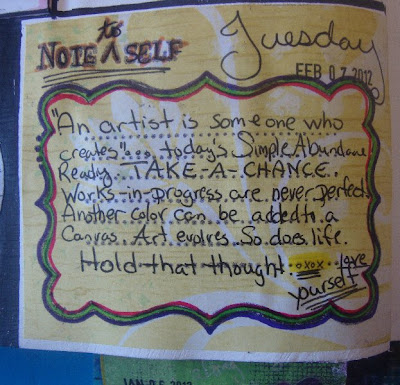 NOTE to SELF
Tuesday
FEB 07 2012
"An artist is someone who
creates"... today's Simple Abundance
Ready... TAKE-A-CHANCE.
Works-in-progress are never perfect.
Another color can be added to a
Canvas. Art evolves. So does life.
Hold that thought... oxox love
yourself
JAN 06 2012